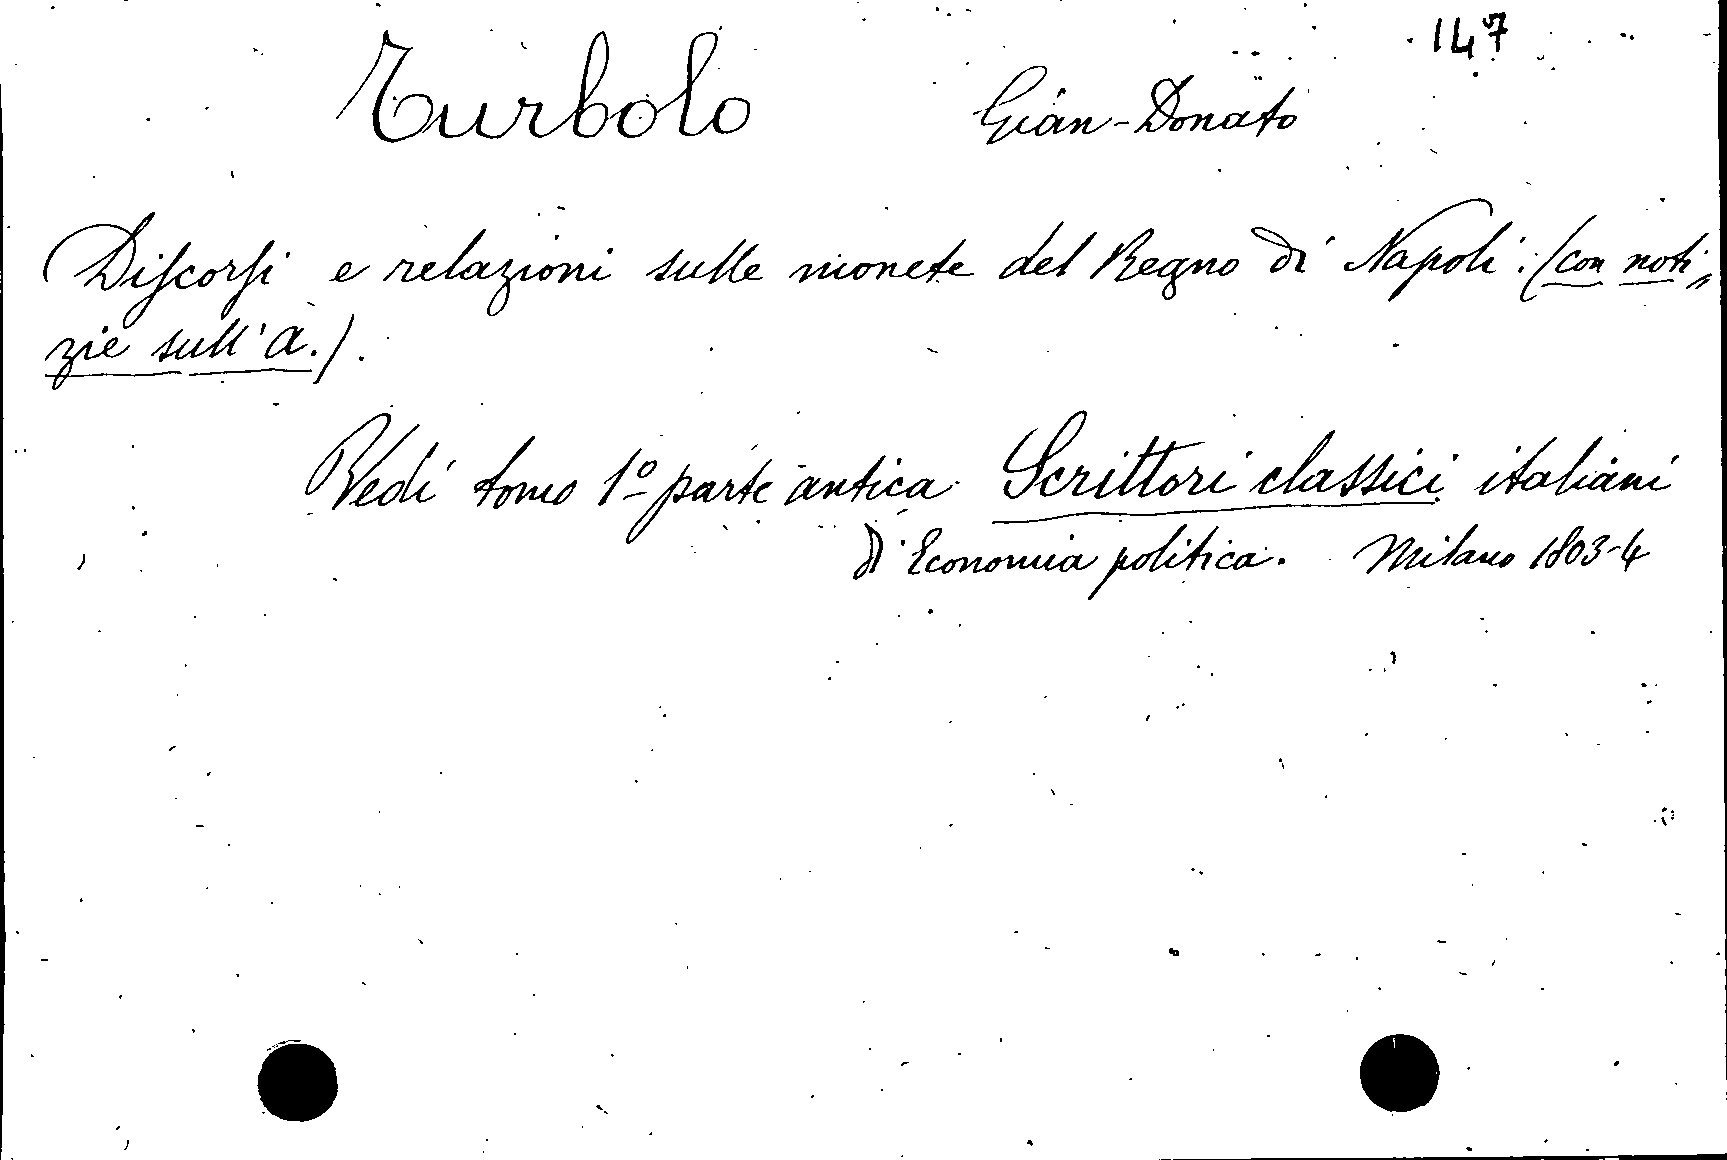 147
Turbolo Gian-Donato
Discorsi e relazioni sulle monete del Regno di Napoli: (con noti-
zie sull'A.).
Vedi tomo 1º parte antica Scrittori classici italiani
di Economia politica. Milano 1803-4